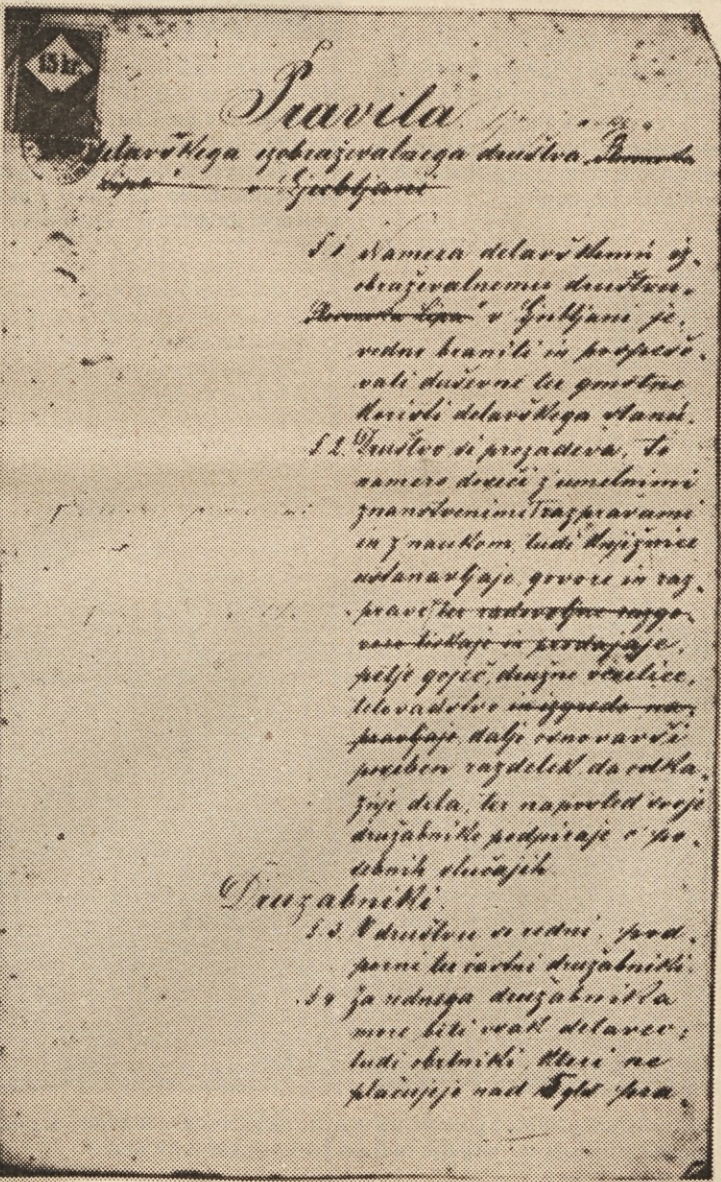 15 kr
Pravila
delavškega izobraževalnega društva
v Ljubljani
§ 1 Namera delavškemu iz-
obraževalnemu društvu
Lipa v Ljubljani je,
vedno braniti in pospeše-
vati duševne ter gmotne
koristi delavškega stanú.
§ 2. Društvo si prizadeva, to
namero doseči z umetnimi
znanstvenimi razpravami
in z naukom, tudi knjižnice
ustanavljaje, govore in raz-
prave, ter radovoljne razgo-
vore tiskaje in prodajaje,
petje goječ, družne veselice,
telovadstvo in izgrede na-
pravljaje, dalje osnovavši
poseben razdelek, da odka-
zuje dela, ter napósled svoje
družabnike podpiraje v po-
sebnih slučajih.
Družabniki.
§ 3. V društvu so redni, pod-
porni ter častni družabniki.
§ 4 Za rednega družabnika
more biti vsak delavec,
tudi obrtniki, kteri ne
plačujejo nad 5 gld pra-